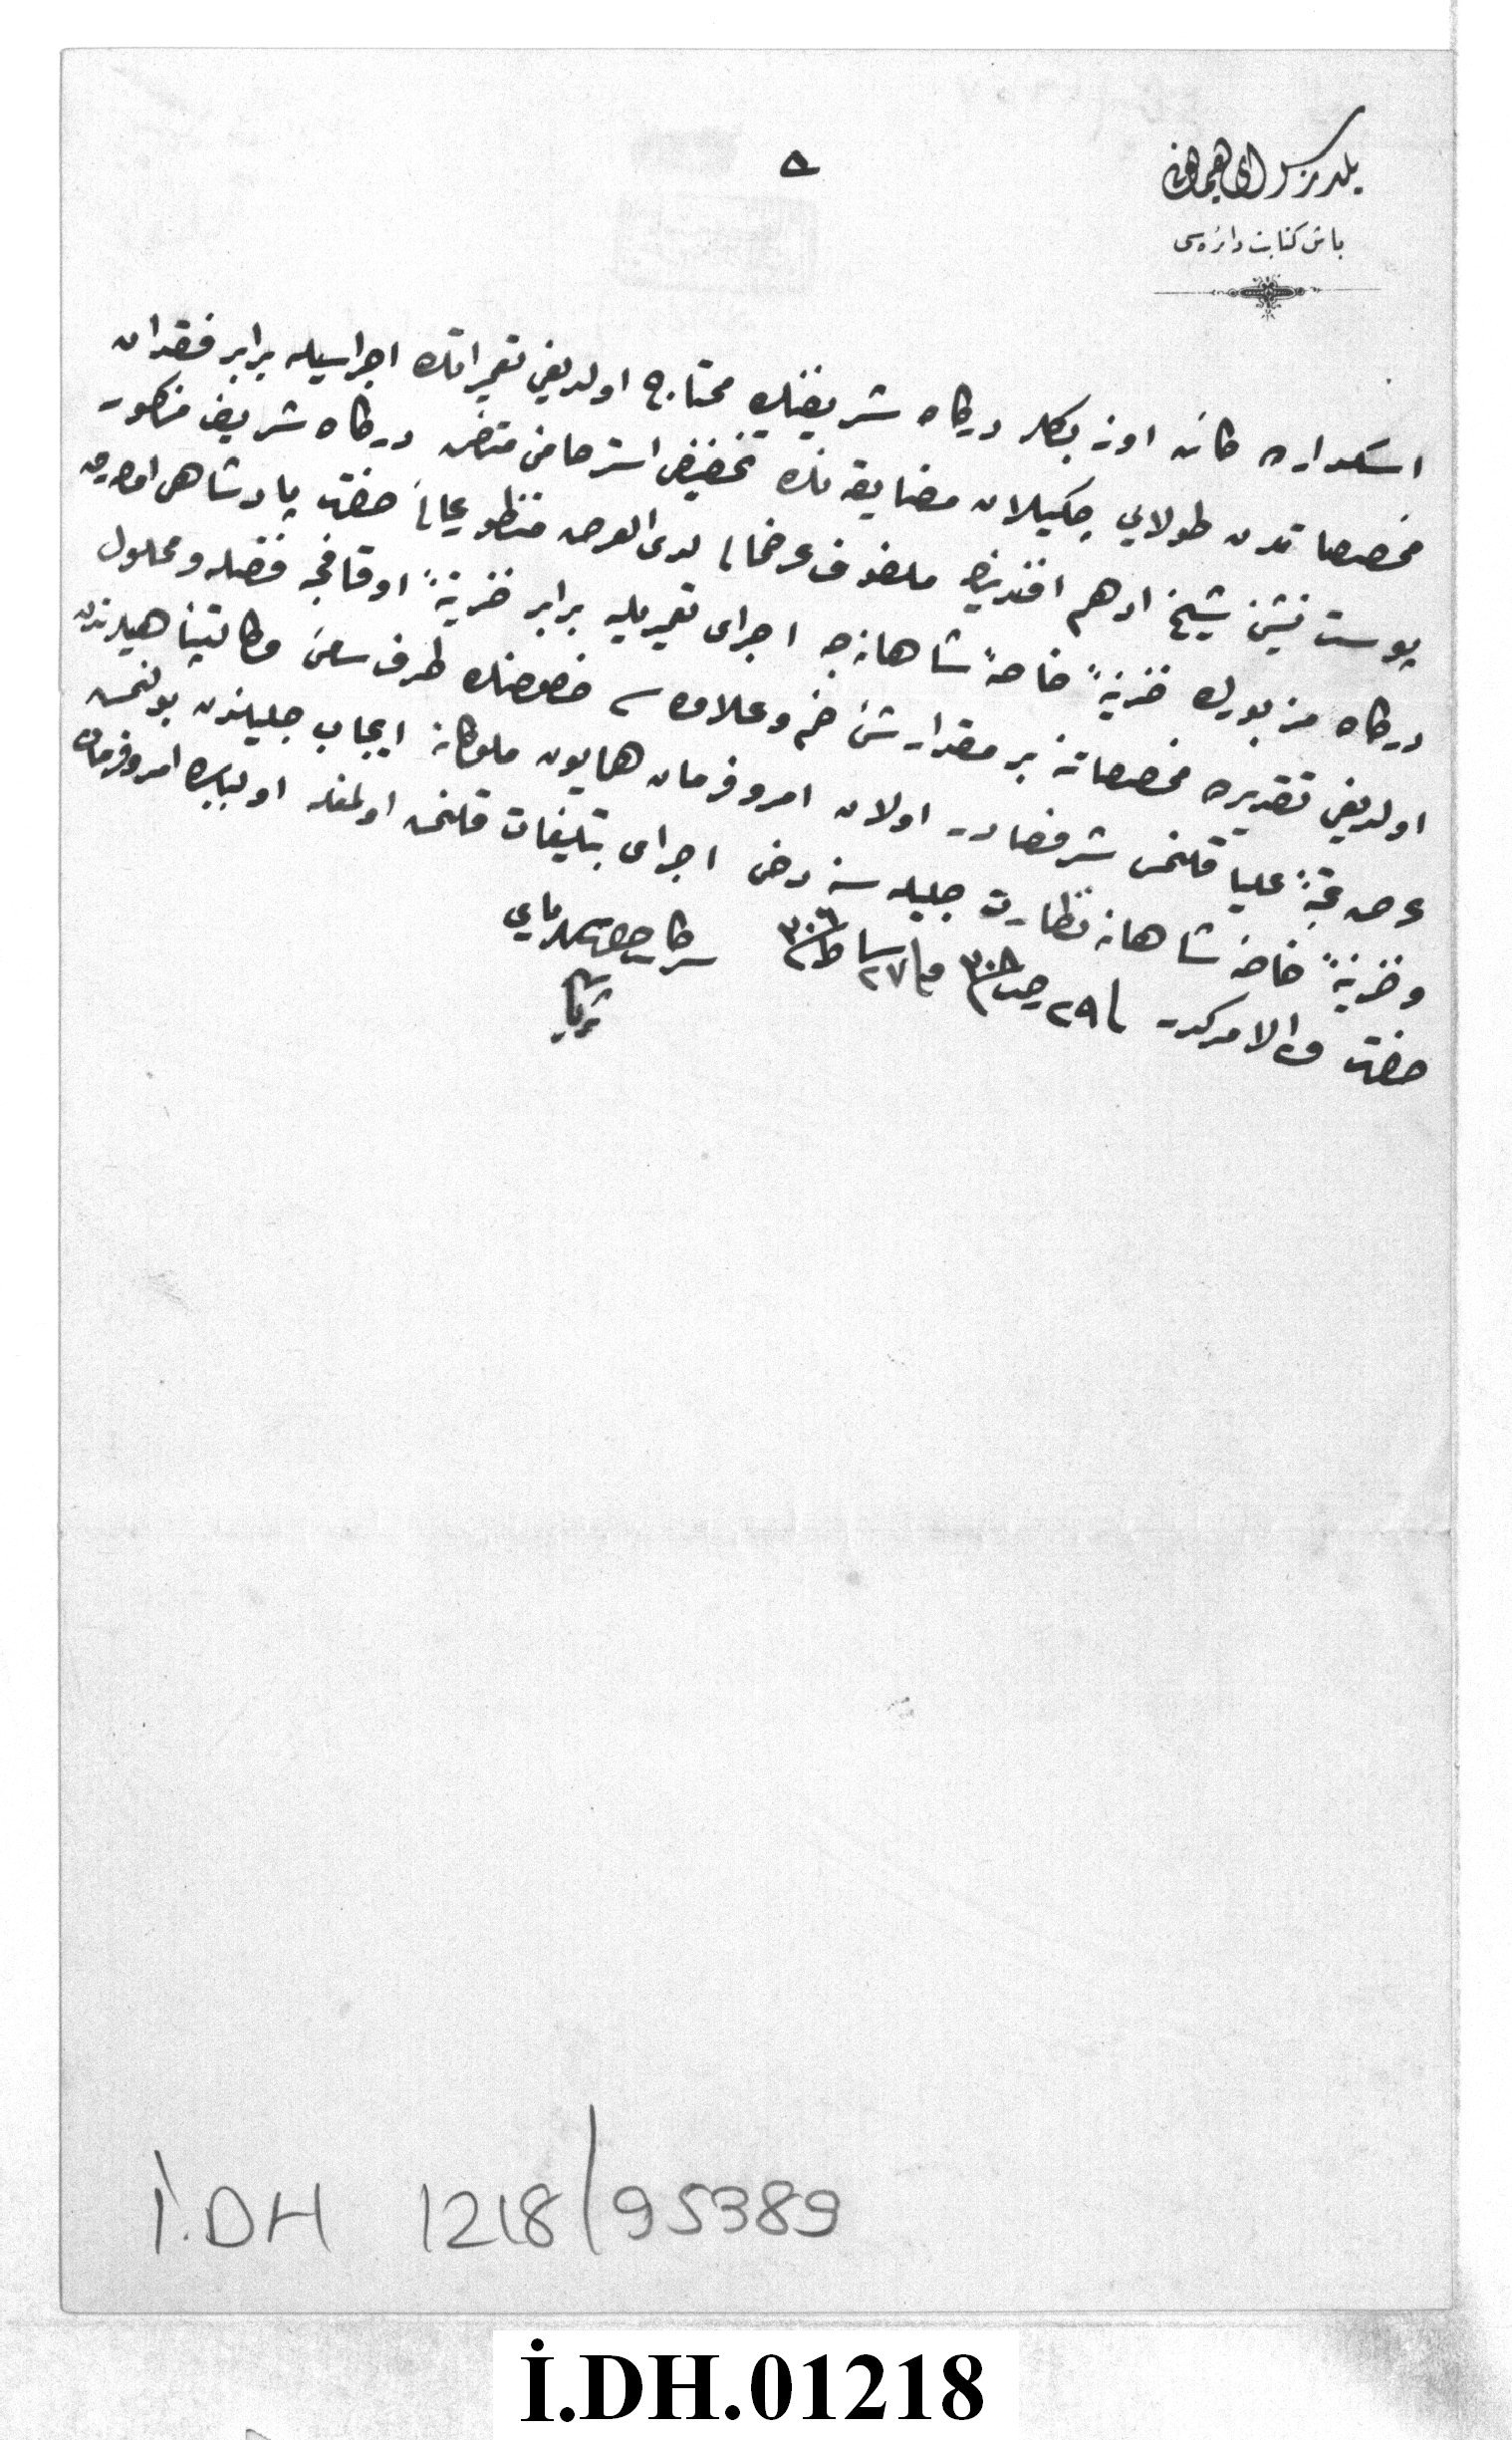 ٥
یلدیز سرای همایونی
باش كتابت دائره‌سی
اسكدارده كائن اوزبكلر درگاه شریفنك محتاج اولدیغی تعمیراتك اجراسیله برابر فقدان
مخصصاتدن طولایی چكیلان مضایقه‌نك تخفیفی استرحامنی متضمن درگاه شریف مذكور
پوست نشینی شیخ ادهم افندینك ملفوف عرضحالی لدی العرض منظور عالی حضرت پادشاهی اوله‌رق
درگاه مزبورك خزینهٔ خاصهٔ شاهانه‌جه اجرای تعمیریله برابر خزینهٔ اوقافجه فضله و محلول
اولدیغی تقدیرده مخصصاتنه بر مقدار شی ضم و علاوه‌سی خصوصنك طرف سامئ وكالتپناهیلرندن
عرض عتبهٔ علیا قلنمسی شرفصادر اولان امر و فرمان همایون ملوكانه ایجاب جلیلندن بولنمش
و خزینهٔ خاصهٔ شاهانه نظارت جلیله‌سنه دخی اجرای تبلیغات قلنمش اولمغله اولبابده امر و فرمان
حضرت ولی الامركدر فی ٢٩ ج سنه ٣٠٨ و فی ٢٧ ك سنه ٣٠٦ سركاتب حضرت شهریاری
ثریا
İ.DH 1218/95389
İ.DH.01218